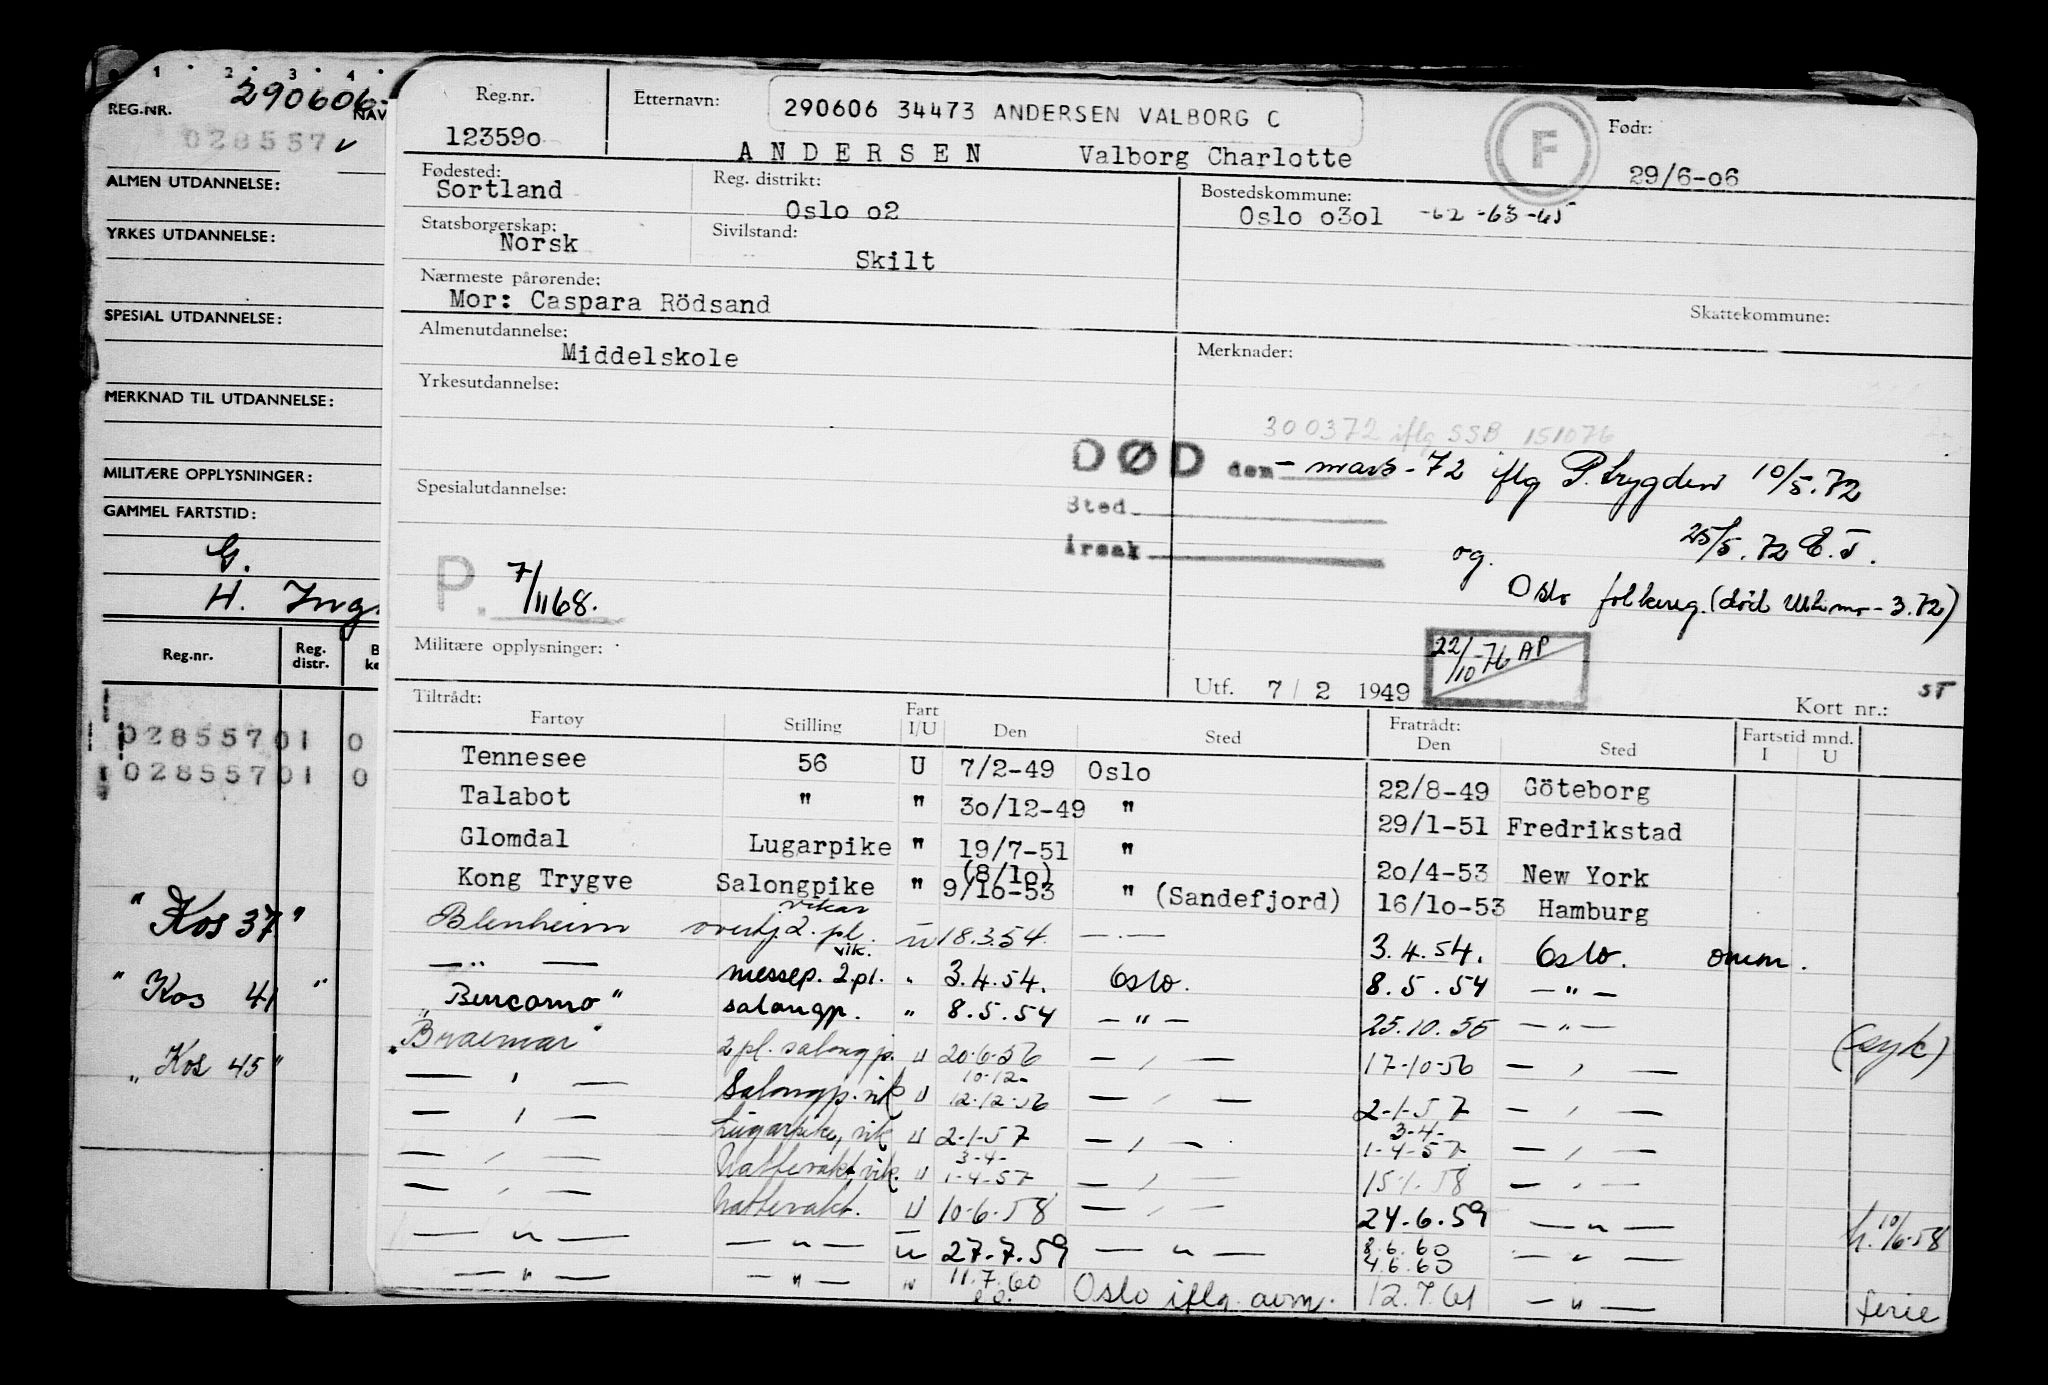 1 2 3 4
REG.NR. 290606- NAV
028557 v
ALMEN UTDANNELSE:
YRKES UTDANNELSE:
SPESIAL UTDANNELSE:
MERKNAD TIL UTDANNELSE:
MILITÆRE OPPLYSNINGER:
GAMMEL FARTSTID:
G.
H. Ing.
Reg.nr. Reg. distr. B ke
028557 01 0
028557 01 0
"Kos 37"
"Kos 41"
"Kos 45"
Reg.nr. 12359o
Etternavn: 290606 34473 ANDERSEN VALBORG C
ANDERSEN Valborg Charlotte
F
Født: 29/6-o6
Fødested: Sortland
Reg. distrikt: Oslo o2
Bostedskommune: Oslo o3o1 -62 -63 -65
Statsborgerskap: Norsk
Sivilstand: Skilt
Nærmeste pårørende: Mor: Caspara Rödsand
Skattekommune:
Almenutdannelse: Middelskole
Merknader:
Yrkesutdannelse:
300372 iflg SSB 151076
DØD den - mars - 72 iflg P.trygden 10/5.72
Spesialutdannelse:
Sted
Årsak
og 25/5.72 E.T.
Oslo folkereg. (død Ullevål - 3.72)
P. 7/11 68.
Militære opplysninger:
22/10-76 AP
Utf. 7 / 2 1949
Kort nr.: ST
Tiltrådt: Fratrådt: Fartstid mnd.
Fartøy Stilling Fart I/U Den Sted Den Sted I U
Tennesee 56 U 7/2-49 Oslo 22/8-49 Göteborg
Talabot " " 3o/12-49 " 29/1-51 Fredrikstad
Glomdal Lugarpike " 19/7-51 " 2o/4-53 New York
Kong Trygve Salongpike " (8/1o) 9/1o-53 " (Sandefjord) 16/1o-53 Hamburg
Blenheim overtj 2. pl. vikar u 18.3.54. —·— 3.4.54. Oslo. omm.
—"— messep. 2.pl. vik. " 3.4.54. Oslo. 8.5.54 —"—
"Bencomo" salongp. " 8.5.54 —"— 25.10.55 —"—
"Braemar" 2 pl. salongp. U 20-6-56 — , — 17-10-56 — , — (syk)
— , — Salongp. vik U 10-12- 12-12-56 — , — 2-1-57 — , —
— , — Lugarpike, vik U 2-1-57 — , — 3-4- 1-4-57 — , —
— , — Nattevakt, vik. U 3-4- 1-4-57 — , — 15-1-58 — , —
— , — Nattevakt. U 10-6-58 — , — 24-6.59 —"— h. 10/6-58
—"— —"— u 27-7.59 —"— 8.6.60 4.6.60 —"—
—"— —"— " 11.7.60 Oslo iflg. avm. 12.7.61 —"— ferie